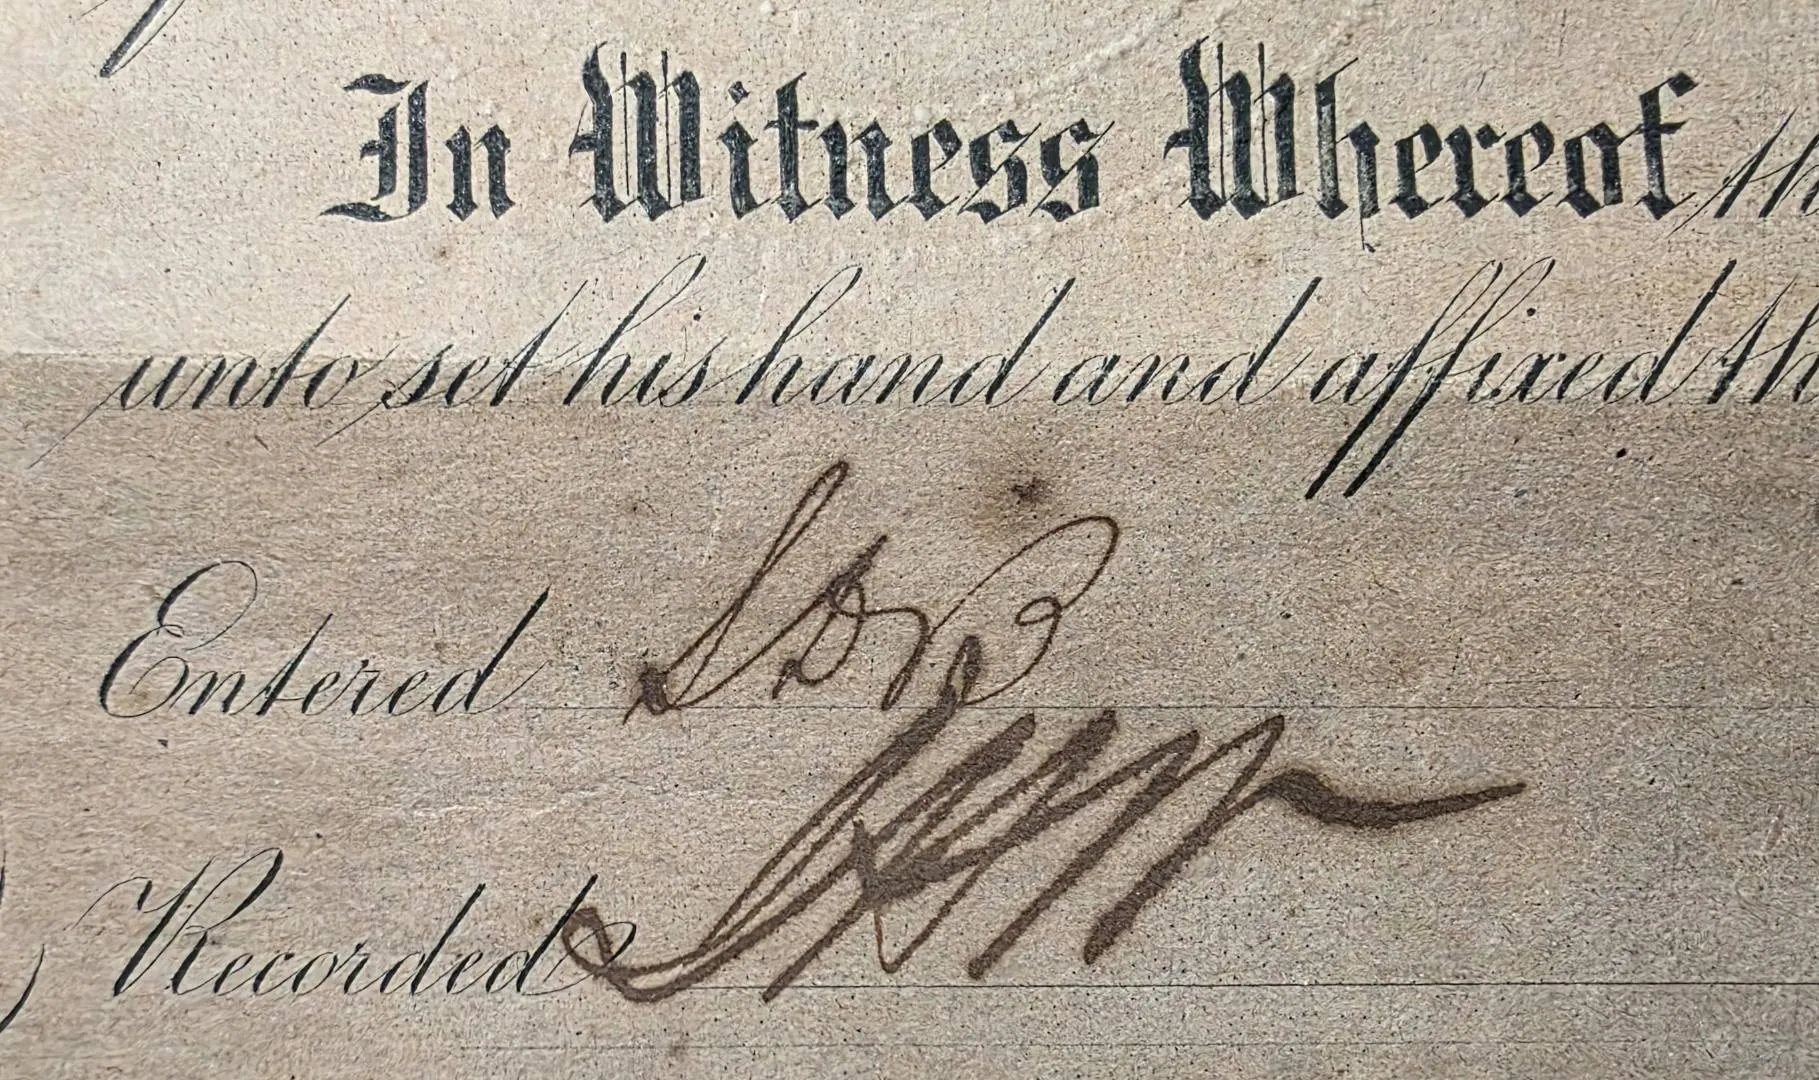 In Witness Whereof
unto set his hand and affixed
Entered
Recorded